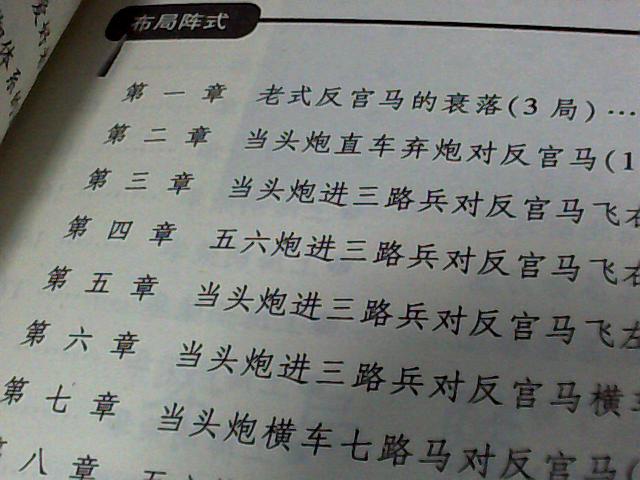 布局阵式
第一章 老式反宫马的衰落(3局)…
第二章 当头炮直车弃炮对反宫马(1
第三章 当头炮进三路兵对反宫马飞右
第四章 五六炮进三路兵对反宫马飞右
第五章 当头炮进三路兵对反宫马飞左
第六章 当头炮进三路兵对反宫马横
第七章 当头炮横车七路马对反宫马(
八章 五六